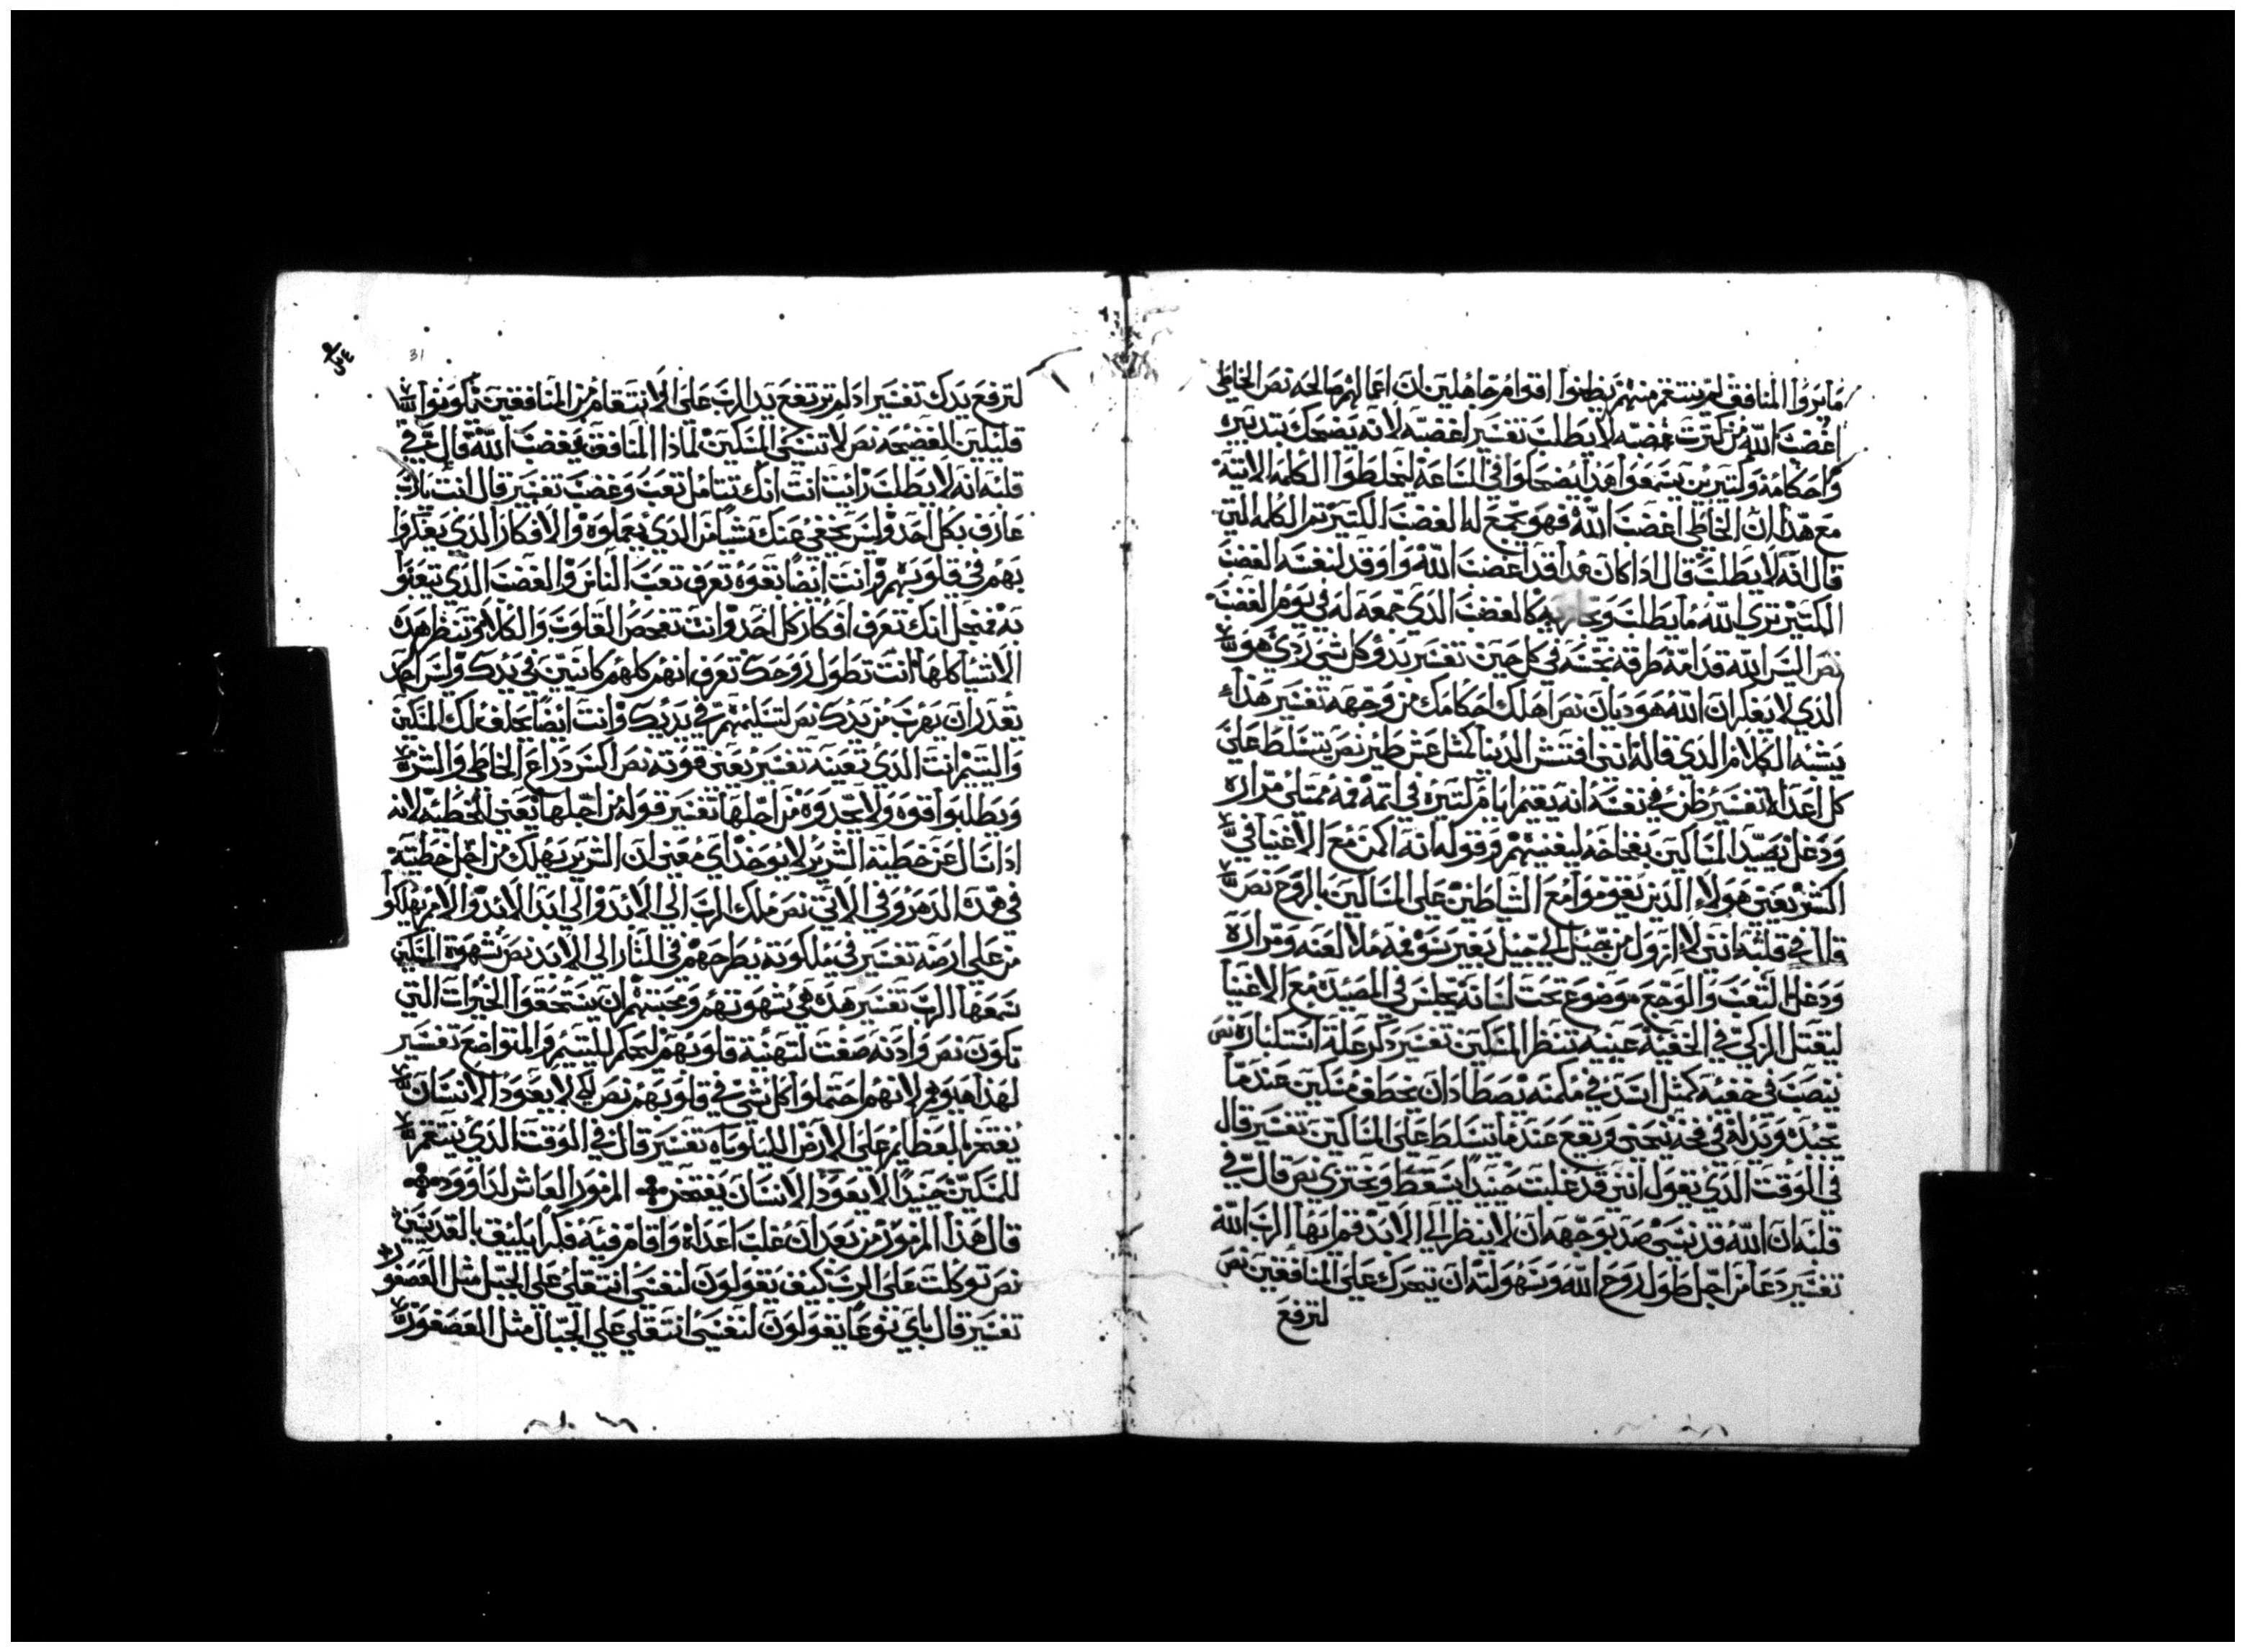 ما يروا المنافق لم ينتقم منهم يظنوا اقوام جاهلين ان اعمالهم صالحه نص الخاطي
اغضب الله من كترت غضبه لا يطلب تفسير اغضبه لانه يضحك بتدبيره
واحكامه وكتيرين يسمعوا هذا يضحكوا في الساعة ليخلطوا الكلمه الاتية
مع هذا ان الخاطي اغضب الله فهو يجمع له الغضب الكتير تم الكلمه التي
قال انه لا يطلب قال اذا كان هذا قد اغضب الله واوقد لنفسه الغضب
الكتير تري الله ما يطلب كالغضب الذي جمعه له في يوم الغضب
نص اليس الله قدامه طرقه نجسه في كل حين تفسير يد وكل شي ردي هو
الذي لا يفكر ان الله هو ديان نص اهلك احكامك من وجهه تفسير هذا
يشبه الكلام الذي قاله انني افتش الدنيا كمثل عش طير نص يتسلط علي
كل اعداه تفسير ظن في نفسه انه يقيم ايام كتيره في اتمه فمه ممتلي مراره
ودغل يصيد المساكين بفخاخه ليغنيهم وقوله انه اكمن مع الاغنيا في
السر يعني هولاء الذين يقوموا مع الشياطين علي المساكين بالروح نص
قال في قلبه انني لا ازول من جيل الي جيل بغير سو فمه ملا لعنه ومراره
ودغل التعب والوجع موضوع تحت لسانه يجلس في المصيدة مع الاغنيا
ليقتل الزكي في الخفيه عينيه تنظر المسكين تفسير ذكر علة استكباره نص
ينصب في خفيه كمثل اسد في مكمنه يصطاد ان يخطف مسكين عندما
يجبده ويدله في فخه ينحني ويقع عندما يتسلط علي المساكين تفسير قال
في الوقت الذي يقول انني قد غلبت حينيدا يسقط ويختزي نص قال في
قلبه ان الله قد نسي صد بوجهه ان لا ينظر الي الابد قم ايها الرب الله
تفسير دعا من اجل طول روح الله وسهولته ان يتحرك علي المنافقين نص
لترفع
31
لترفع يدك تفسير اذ لم ترتفع يد الرب علي الانتقام من المنافقين يكونوا
قليلين الفضيحه نص لا تنسي المسكين لماذا المنافق يغضب الله قال في
قلبه انه لا يطلب رايت انت انك تتامل تعب وغضب تفسير قال انت يارب
عارف بكل احد وليس يخفي عنك شيا من الذي يعملوه والافكار الذي يفكروا
بهم في قلوبهم وانت ايضا تعرف تعب الناس والغضب الذي تبعتوا
به من اجل انك تعرف افكار كل احد وانت تفحص القلوب والكلا وتنظر هذه
الاشيا كلها انت تطول روحك تعرف انهم كلهم كاينين في يدك وليس احد
يقدر ان يهرب من يدك نص لتسليمهم في يديك وانت ايضا يخلف لك المسكين
واليتيم انت الذي تعينه تفسير يعني قوته نص اكسر دراع الخاطي والشرير
ويطلبوا قوه ولا يجدوه من اجلها تفسير قوله من اجلها يعني الخطيه لانه
اذا سال عن خطية الشرير لا يوجد اي معني ان الشرير يهلك من اجل خطيته
في هذه الدهر وفي الاتي نص ملك الرب الي الابد والي ابد الابد والامم يهلكوا
من علي ارضه تفسير في ملكوته يطرحهم في النار الي الابد نص شهوة المسكين
سمعها الرب تفسير هذه هي شهوتهم ومحبتهم ان يستحقوا الخيرات التي
تكون نص واذنه صغت لتهنية قلوبهم ليحكم لليتيم والمتواضع تفسير
لهذا هو هم لانهم احتملوا كل شي في قلوبهم نص لكي لا يعود الانسان
يفتخر بالعظايم علي الارض تفسير قال في الوقت الذي ينتقم
للمسكين حينيدا لا يعود الانسان يفتخر المزمور العاشر لداوود
قال هذا المزمور من بعد ان غلب اعداه واقام فيه فكرا يليق بالقديسين
نص توكلت علي الرب كيف يقولون لنفسي انتقلي علي الجبل مثل العصفور
تفسير قال باي نوعا يقولون لنفسي انتقلي علي الجبال مثل العصفور